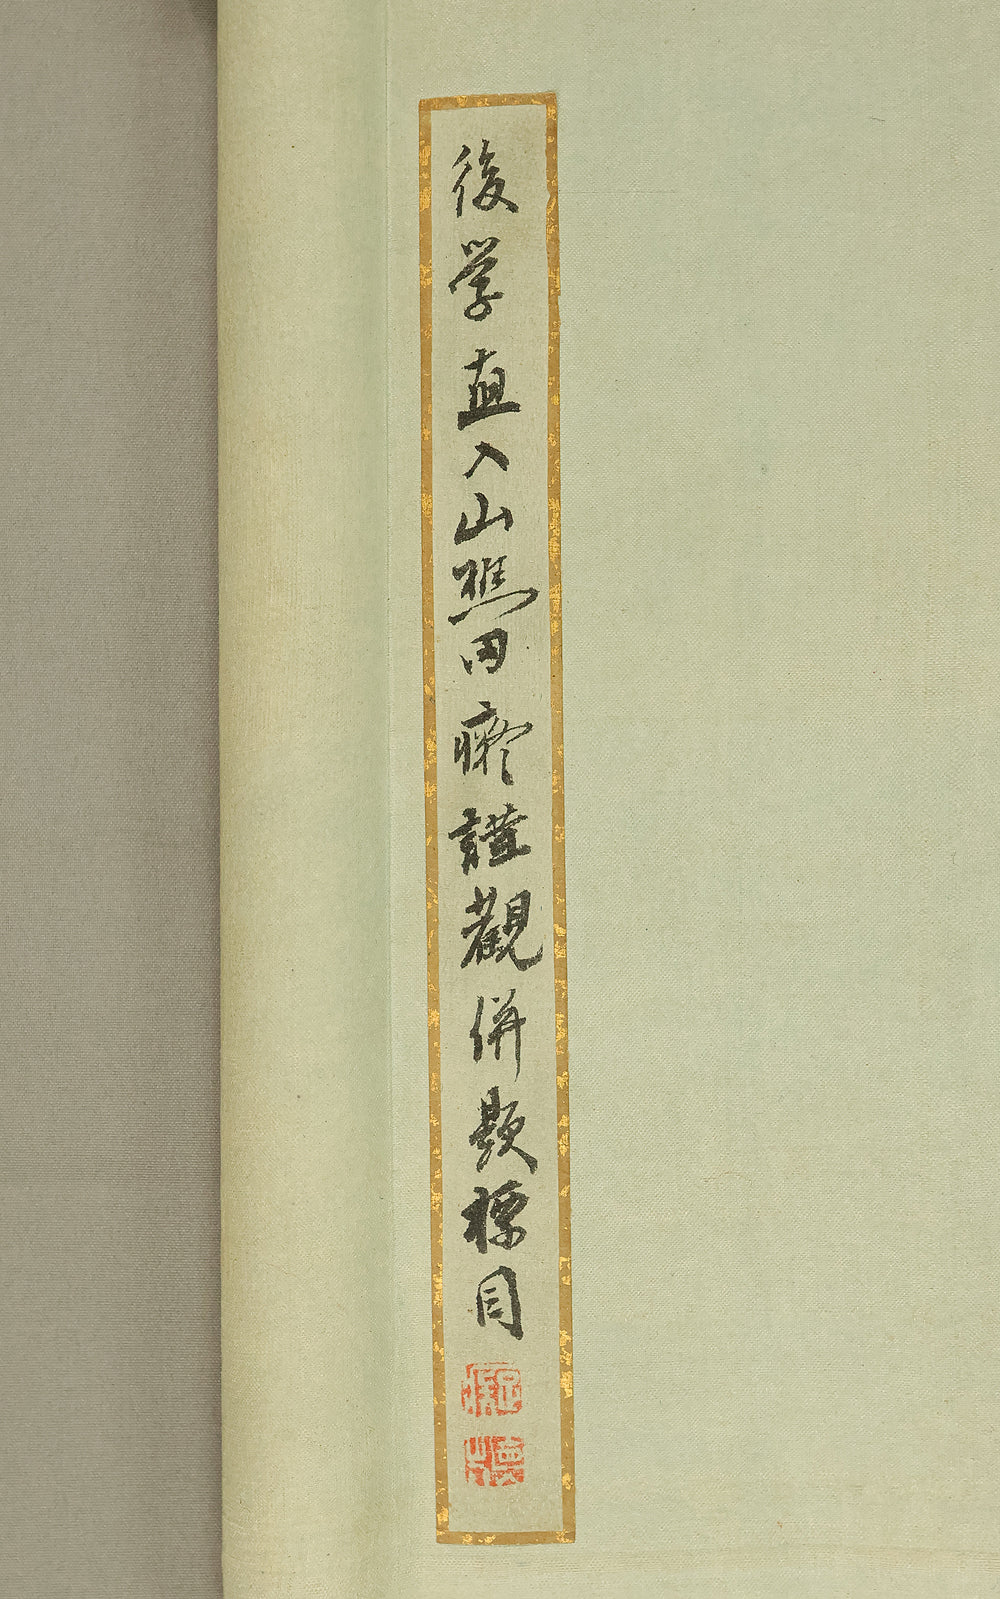 後学直入山樵田癡謹觀併題標目